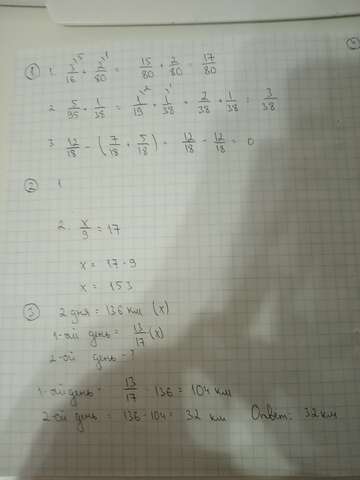 ① 1. 3/16 \5 + 2/80 \1 = 15/80 + 2/80 = 17/80
2. 5/95 + 1/38 = 1/19 \2 + 1/38 \1 = 2/38 + 1/38 = 3/38
3 12/18 - (7/18 + 5/18) = 12/18 - 12/18 = 0
② 1
2. x/9 = 17
x = 17 · 9
x = 153
③ 2 дня = 136 км (x)
1-ый день = 13/17 (x)
2-ой день = ?
1-ый день = 13/17 · 136 = 104 км
2-ой день = 136 - 104 = 32 км Ответ: 32 км